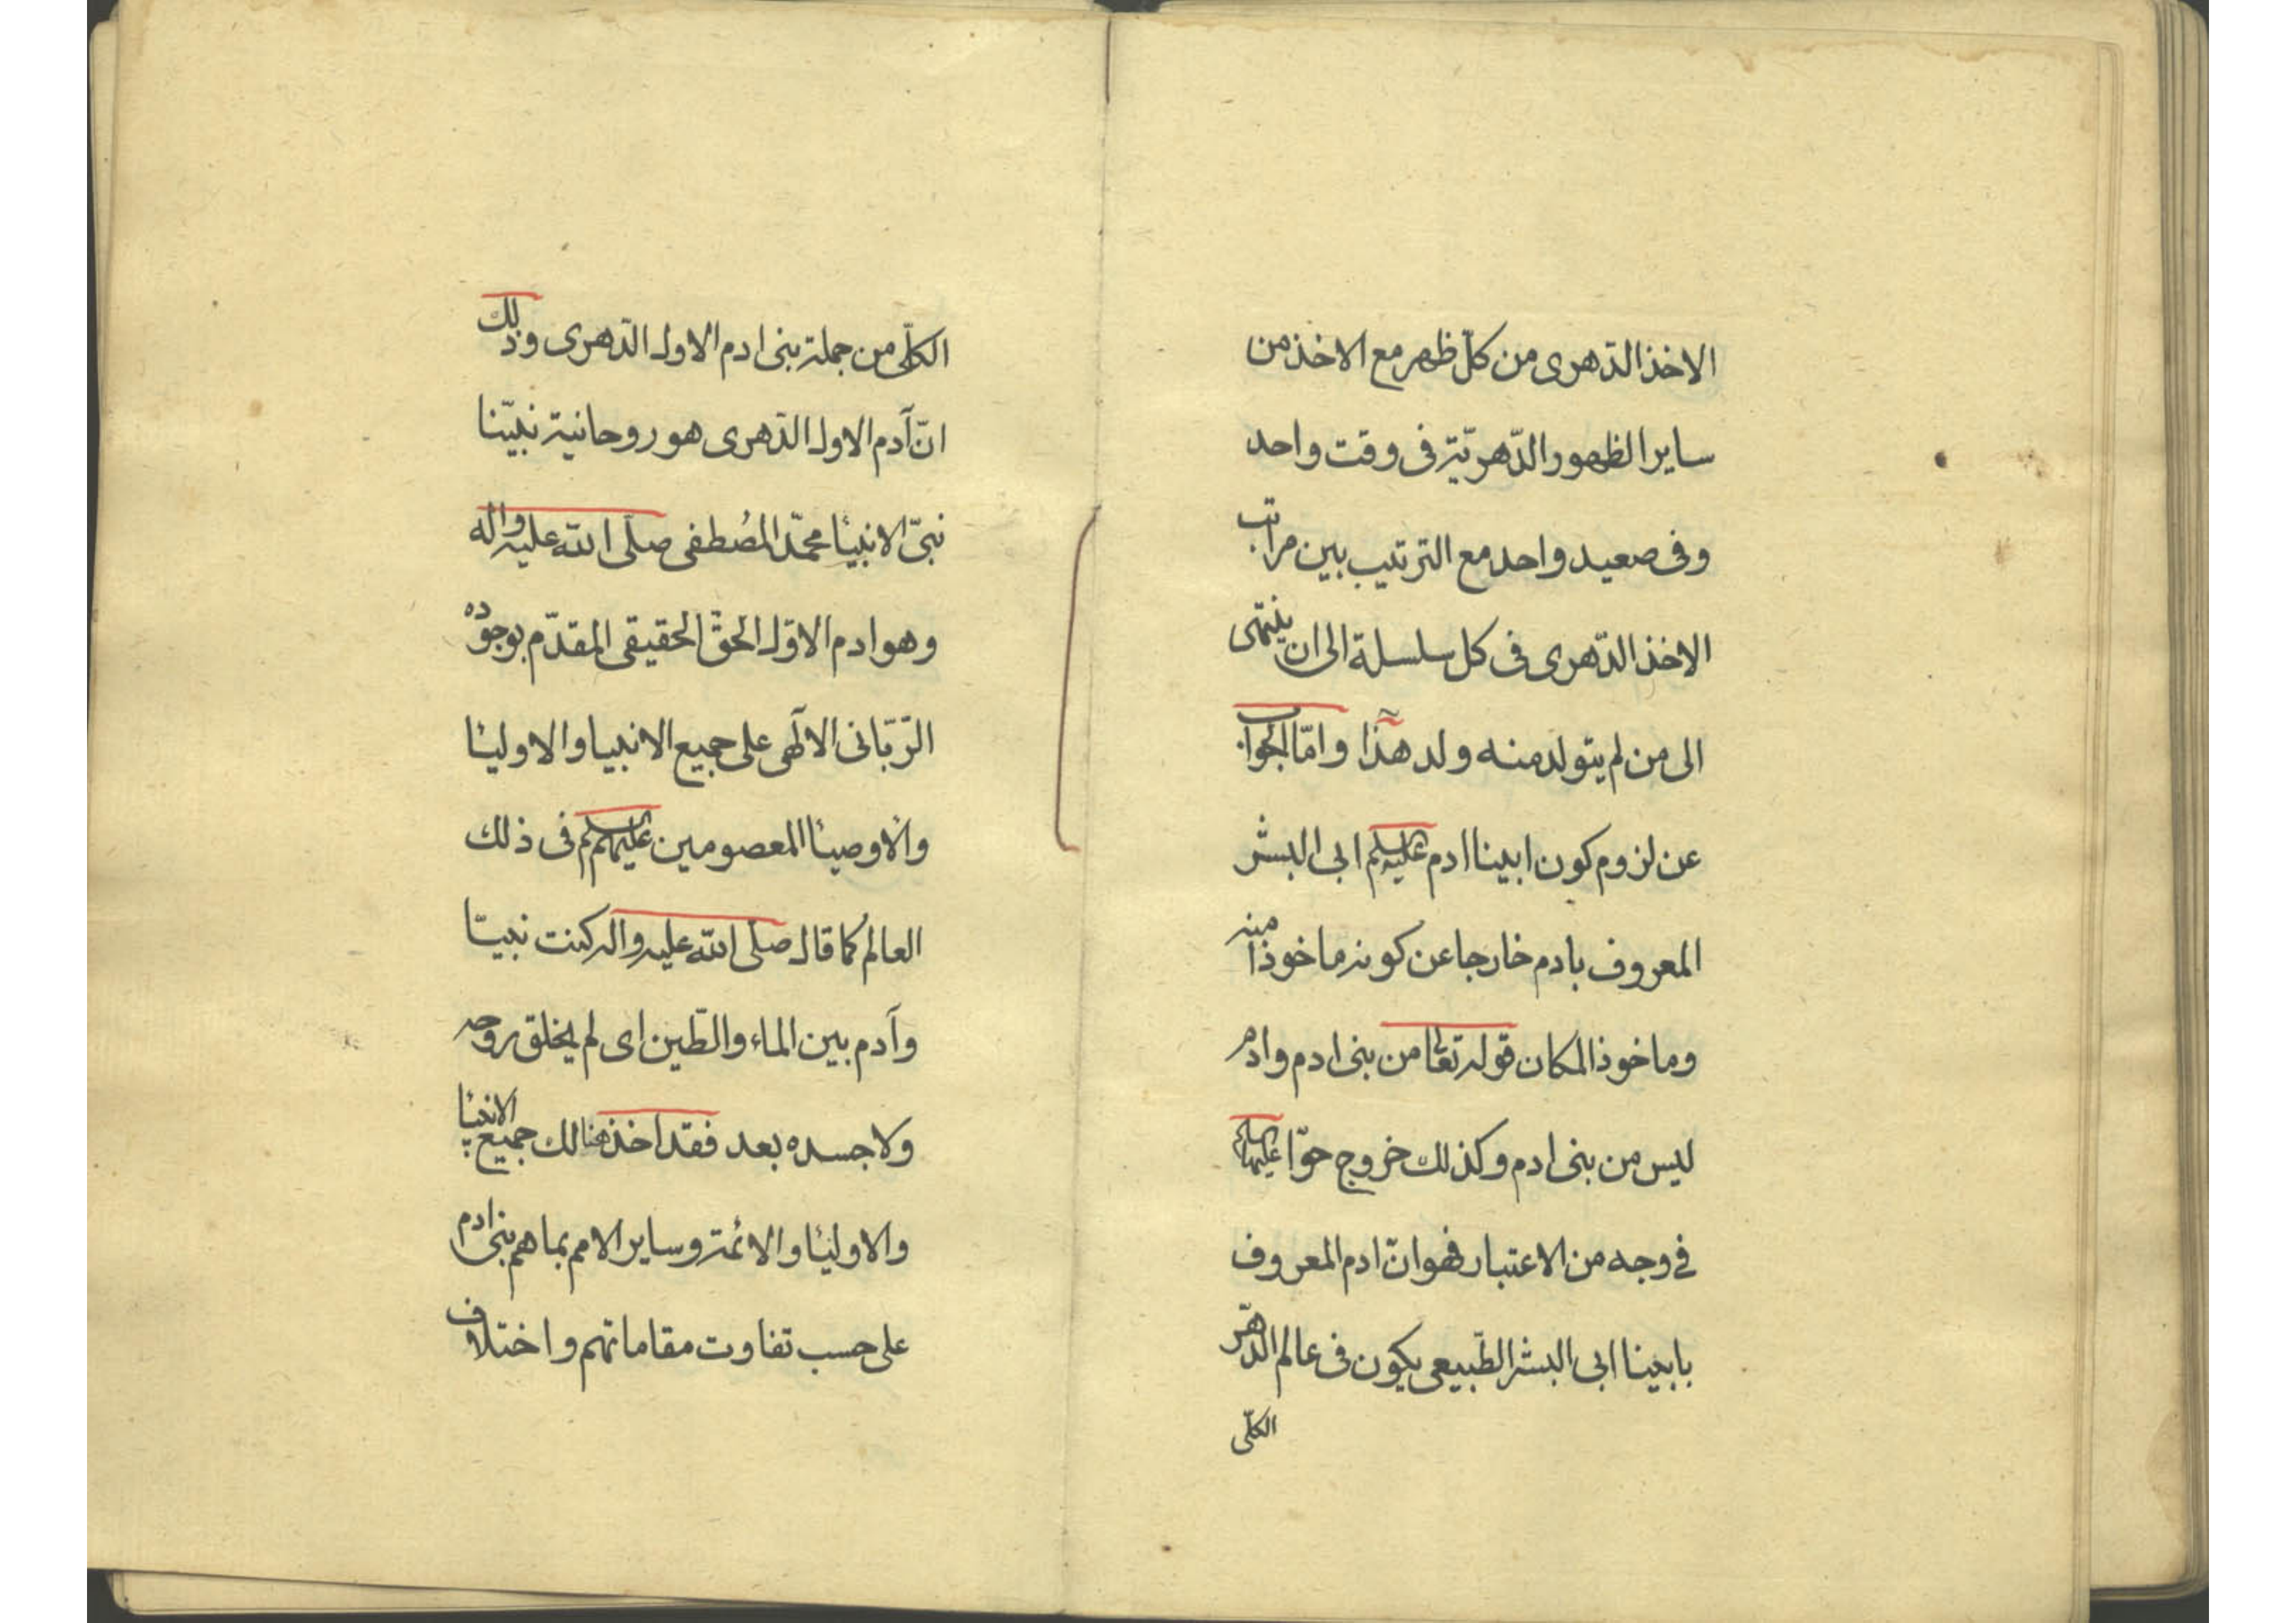 الاخذ الدّهرى من كلّ ظهر مع الاخذ من
ساير الظهور الدّهريّة فى وقت واحد
وفى صعيد واحد مع الترتيب بين مراتب
الاخذ الدّهرى فى كل سلسلة الى ان ينتهى
الى من لم يتولد منه ولد هذا وامّا الجواب
عن لزوم كون ابينا ادم عليه السلم ابى البشر
المعروف بادم خارجا عن كونه ماخوذا منه
وماخوذ المكان قوله تعالى من بنى ادم وادم
ليس من بنى ادم وكذلك خروج حوّا عليها السلم
فى وجه من الاعتبار فهو انّ ادم المعروف
بابينا ابى البشر الطّبيعى يكون فى عالم الدّهر
الكلّى
الكلّى من جملة بنى ادم الاول الدّهرى وذلك
انّ آدم الاول الدّهرى هو روحانية نبيّنا
نبىّ الانبيئا محمّد المُصطفى صلّى الله عليه واله
وهو ادم الاوّل الحقّ الحقيقى المقدّم بوجوده
الرّبّانى الآلهى على جميع الانبيا والاوليئا
والاوصيئا المعصومين عليهم السلم فى ذلك
العالم كما قال صلّى الله عليه واله كنت نبيّا
وآدم بين الماء والطّين اى لم يخلق روحه
ولا جسده بعد فقد اخذ هنالك جميع الانبيئا
والاوليئا والائمة وساير الامم بما هم بنى ادم
على حسب تفاوت مقاماتهم واختلاف